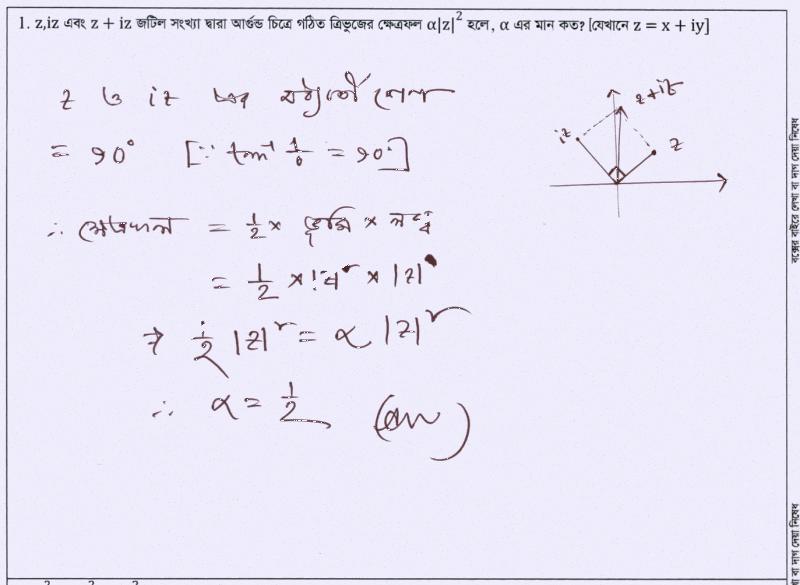 1. z,iz এবং z + iz জটিল সংখ্যা দ্বারা আর্গন্ড চিত্রে গঠিত ত্রিভুজের ক্ষেত্রফল α|z|² হলে, α এর মান কত? [যেখানে z = x + iy]
z ও iz এর মধ্যবর্তী কোণ
= 90° [∵ tan⁻¹ 1/0 = 90°]
iz
z+iz
z
∴ ক্ষেত্রফল = 1/2 × ভূমি × লম্ব
= 1/2 × × |z|
⇒ 1/2 |z|² = α |z|²
∴ α = 1/2 (Ans)
বক্সের বাইরে লেখা বা দাগ দেয়া নিষেধ
বা দাগ দেয়া নিষেধ